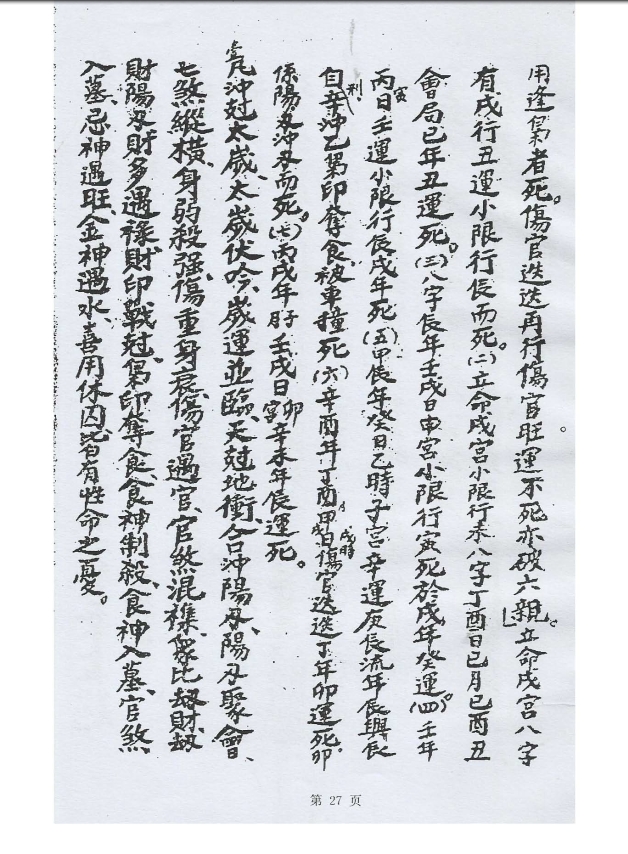 用逢梟者死。傷官迭迭再行傷官旺運不死亦破六親。立命戌宮八字
有戌行丑運小限行辰而死。(二)立命戌宮小限行未八字丁酉日巳月己酉丑
會局巳年丑運死。(三)八字辰年壬戌日申宮小限行寅死於戌年癸運(四)壬年
丙寅日壬運小限行辰戌年死(五)甲辰年癸日乙時子宮辛運庚辰流年辰與辰
自刑辛沖乙梟印奪食被車撞死(六)辛酉年丁酉月甲戌日戌時傷官迭迭丁年卯運死卯
係陽刃沖刃而死。(七)丙戌年 壬戌日卯字辛未年辰運死。
凡沖尅太歲、太歲伏吟、歲運並臨、天尅地衝、合沖陽刃、陽刃聚會、
七煞縱橫、身弱殺强、傷重身衰、傷官遇官、官煞混襍、眾比劫財、劫
財陽刃、財多遇祿、財印戰尅、梟印奪食、食神制殺、食神入墓、官煞
入墓、忌神遇旺、金神遇水、喜用休囚皆有性命之憂。
第 27 页